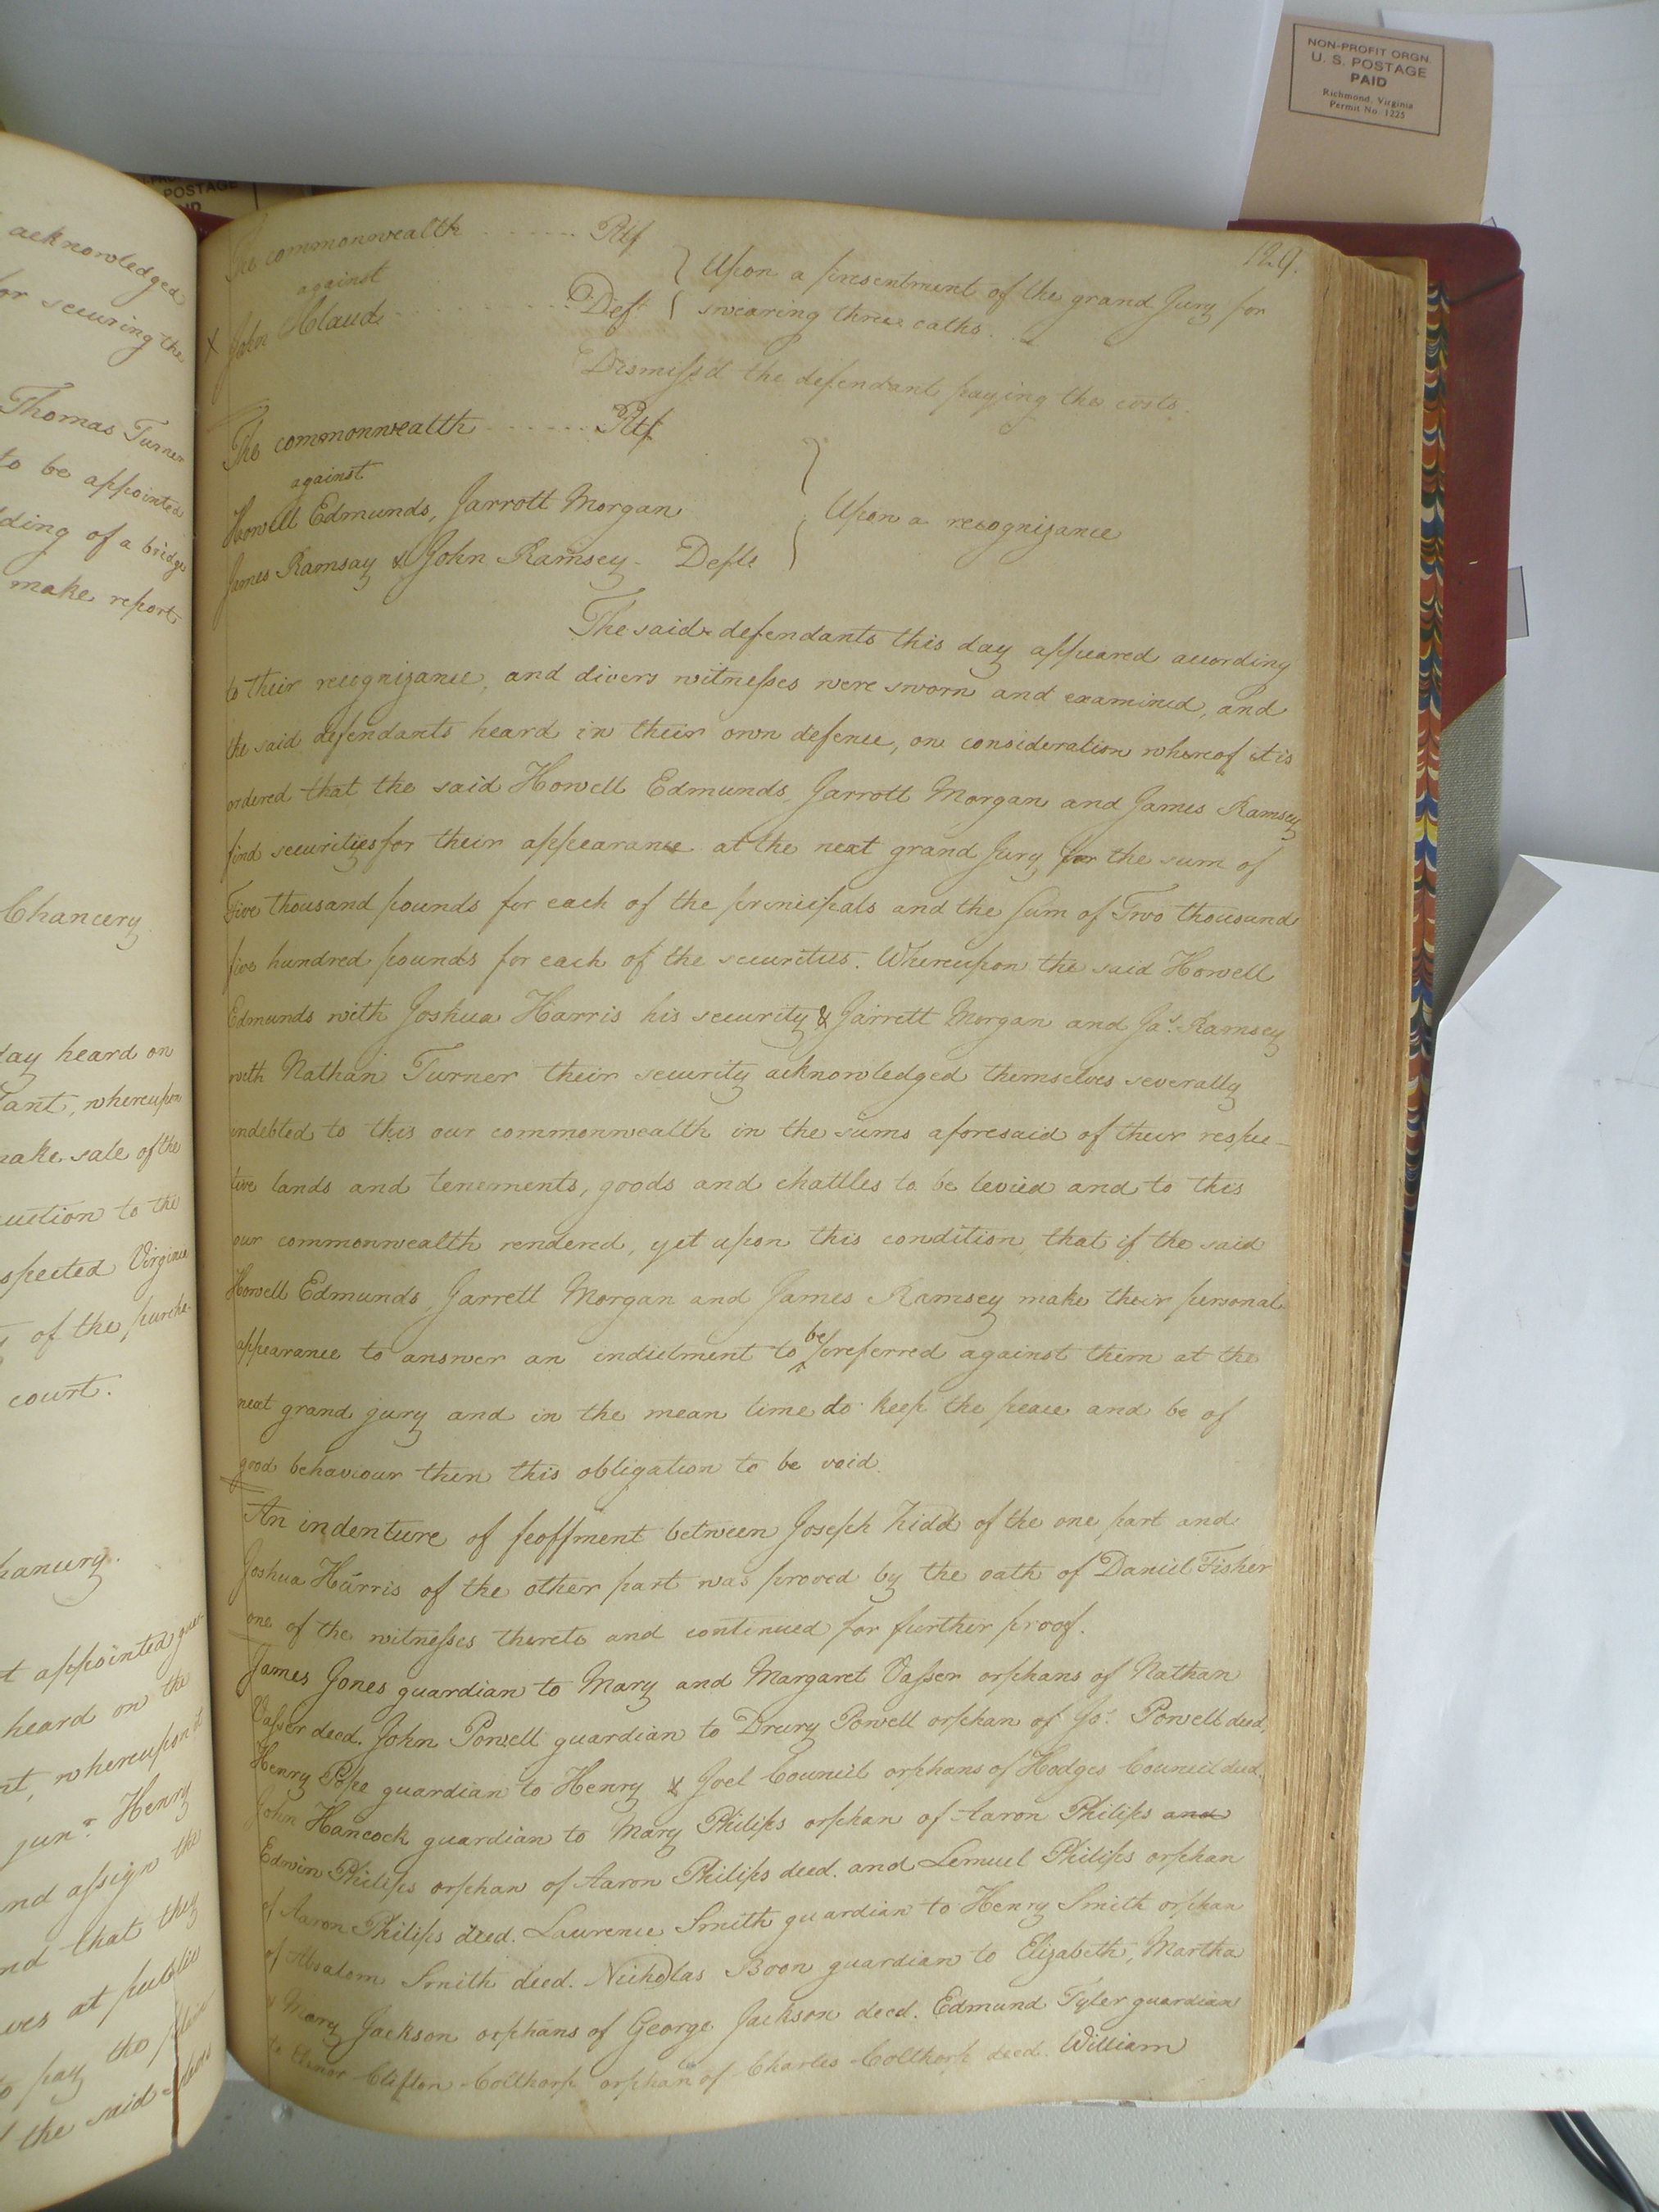 NON-PROFIT ORGN.
U. S. POSTAGE
PAID
Richmond, Virginia
Permit No. 1225
POSTAGE
acknowledged
or securing the
Thomas Turner
to be appointed
ding of a bridge
make report
Chancery
day heard on
ant, whereupon
make sale of the
uction to the
spected Virginia
of the purcha-
court.
hancery.
t appointed guar-
heard on the
nt, whereupon it
junr. Henry
nd assign the
nd that they
ves at public
o pay the
the said
129.
The commonwealth ....... Pltf
against
x John Claud ........... Deft
Upon a presentment of the grand Jury for
swearing three oaths.
Dismiss'd the defendant paying the costs.
The commonwealth ....... Pltf
against
Howell Edmunds, Jarrott Morgan
James Ramsay & John Ramsey - Defts
Upon a recognizance
The said defendants this day appeared according
to their recognizance, and divers witnesses were sworn and examined, and
the said defendants heard in their own defence, on consideration whereof it is
ordered that the said Howell Edmunds, Jarrott Morgan and James Ramsey
find securities for their appearance at the next grand Jury for the sum of
Five thousand pounds for each of the principals and the sum of Two thousand
five hundred pounds for each of the securities. Whereupon the said Howell
Edmunds with Joshua Harris his security & Jarrett Morgan and Jas. Ramsey
with Nathan Turner their security acknowledged themselves severally
indebted to this our commonwealth in the sums aforesaid of their respec-
tive lands and tenements, goods and chattles to be levied and to this
our commonwealth rendered, yet upon this condition that if the said
Howell Edmunds, Jarrett Morgan and James Ramsey make their personal
appearance to answer an indictment to be preferred against them at the
next grand jury and in the mean time do keep the peace and be of
good behaviour then this obligation to be void.
An indenture of feoffment between Joseph Kidd of the one part and
Joshua Harris of the other part was proved by the oath of Daniel Fisher
one of the witnesses thereto and continued for further proof.
James Jones guardian to Mary and Margaret Vasser orphans of Nathan
Vasser deced. John Powell guardian to Drury Powell orphan of Jos. Powell deced,
Henry Pope guardian to Henry & Joel Council orphans of Hodges Council deced.
John Hancock guardian to Mary Philips orphan of Aaron Philips and
Edwin Philips orphan of Aaron Philips deced. and Lemuel Philips orphan
of Aaron Philips deced. Laurence Smith guardian to Henry Smith orphan
of Absalom Smith deced. Nicholas Boon guardian to Elizabeth, Martha
& Mary Jackson orphans of George Jackson deced. Edmund Tyler guardian
to Clifton Colthorp orphan of Charles Colthorp deced. William